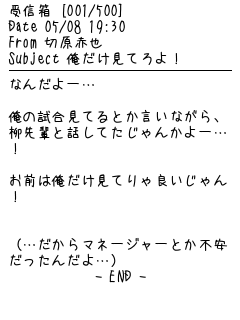 受信箱 [001/500]
Date 05/08 19:30
From 切原赤也
Subject 俺だけ見てろよ！
なんだよー…
俺の試合見てるとか言いながら、
柳先輩と話してたじゃんかよー…
！
お前は俺だけ見てりゃ良いじゃん
！
（…だからマネージャーとか不安
だったんだよ…）
- END -